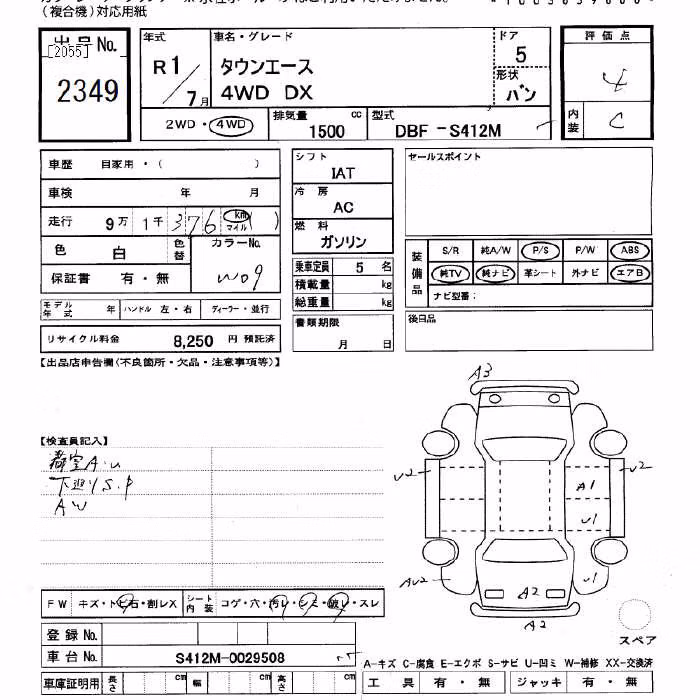 (複合機)対応用紙
出品No.
[2055]
2349
年式
R1/7月
車名・グレード
タウンエース
4WD DX
ドア
5
形状
バン
評価点
4
内装
C
2WD・4WD
排気量 1500 cc
型式 DBF-S412M
車歴 自家用・( )
車検 年 月
走行 9万 1千 376 km マイル ( )
色 白 色替
カラーNo. W09
保証書 有・無
モデル年式 年 ハンドル 左・右 ディーラー・並行
リサイクル料金 8,250 円 預託済
シフト
IAT
冷房
AC
燃料
ガソリン
乗車定員 5 名
積載量 kg
総重量 kg
書類期限
月 日
セールスポイント
装備品
S/R 純A/W P/S P/W ABS
純TV 純ナビ 革シート 外ナビ エアB
ナビ型番:
後日品
【出品店申告欄(不良箇所・欠品・注意事項等)】
【検査員記入】
荷室A.U
下廻りS.P
AW
A3
U2
U2
A1
U1
AU2
A2
U1
A2
スペア
FW キズ・トビ石・割レX
シート内装 コゲ・穴・汚レ・シミ・破レ・スレ
登録No.
車台No. S412M-0029508
A-キズ C-腐食 E-エクボ S-サビ U-凹ミ W-補修 XX-交換済
車庫証明用 長さ cm 幅 cm 高さ cm
工具 有・無 ジャッキ 有・無